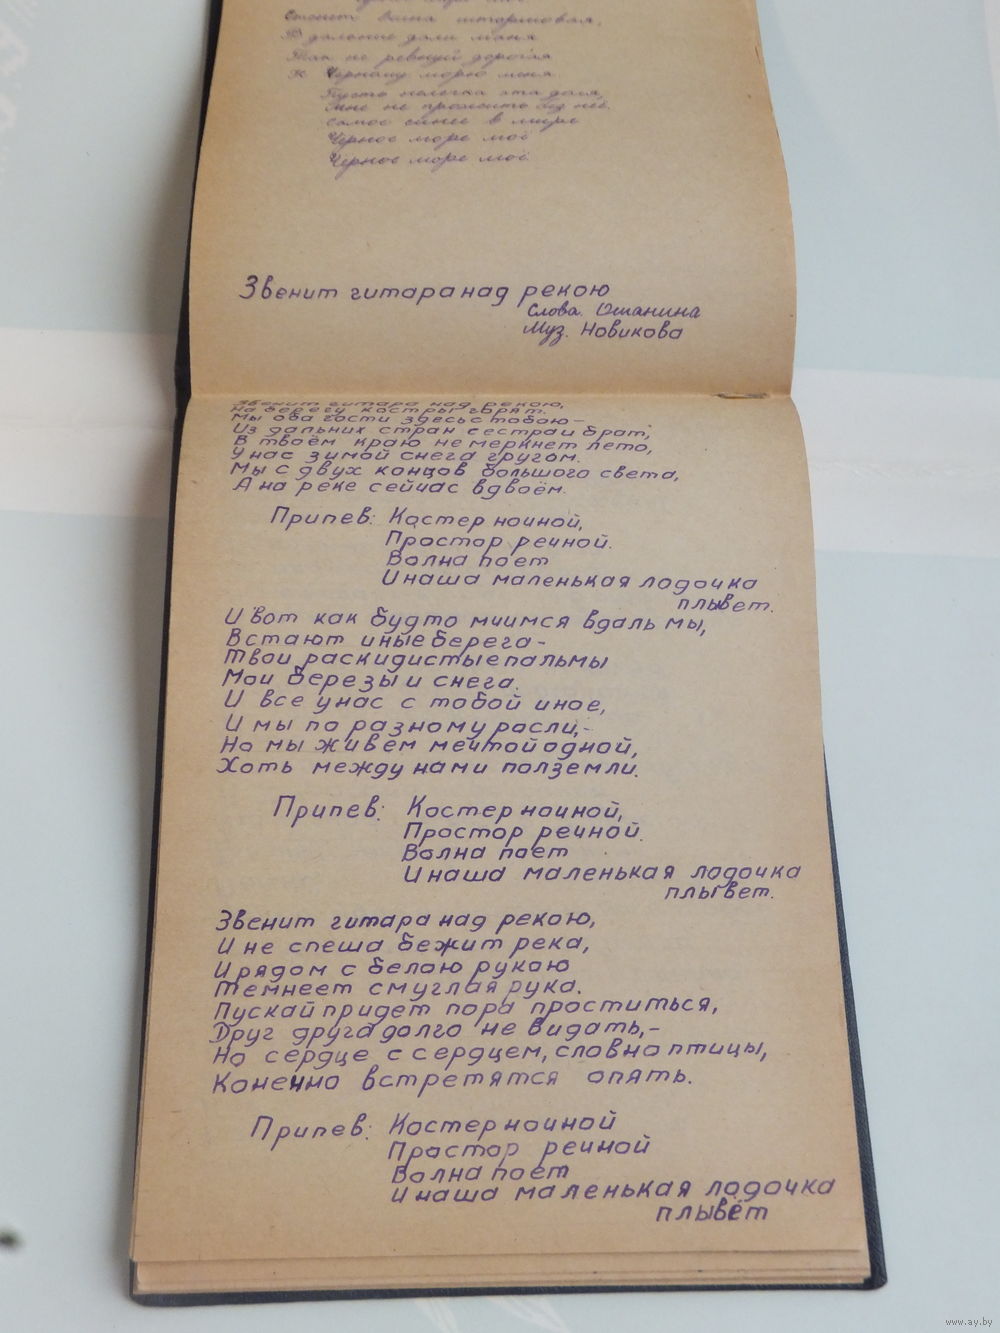 Стонет волна штормовая,
В дальние дали маня
Так не ревнуй дорогая
К Черному морю меня.
Пусть нелегка эта доля,
Мне не прожить без неё.
Самое синее в мире
Чёрное море моё
Черное море моё
Звенит гитара над рекою
Слова. Ошанина
Муз. Новикова
Звенит гитара над рекою,
На берегу костры горят.
Мы оба гости здесь с тобою-
Из дальних стран сестра и брат,
В твоём краю не меркнет лето,
У нас зимой снега кругом.
Мы с двух концов большого света,
А на реке сейчас вдвоём.
Припев: Костер ночной,
Простор речной.
Волна поет
И наша маленькая лодочка
плывет.
И вот как будто мчимся вдаль мы,
Встают иные берега-
Твои раскидистые пальмы
Мои березы и снега.
И все у нас с тобой иное,
И мы по разному росли,-
Но мы живем мечтой одной,
Хоть между нами полземли.
Припев: Костер ночной,
Простор речной.
Волна поет
И наша маленькая лодочка
плывет.
Звенит гитара над рекою,
И не спеша бежит река,
И рядом с белою рукою
Темнеет смуглая рука.
Пускай придет пора проститься,
Друг друга долго не видать,-
Но сердце с сердцем, словно птицы,
Конечно встретятся опять.
Припев: Костер ночной
Простор речной
Волна поет
И наша маленькая лодочка
плывёт
www.ay.by